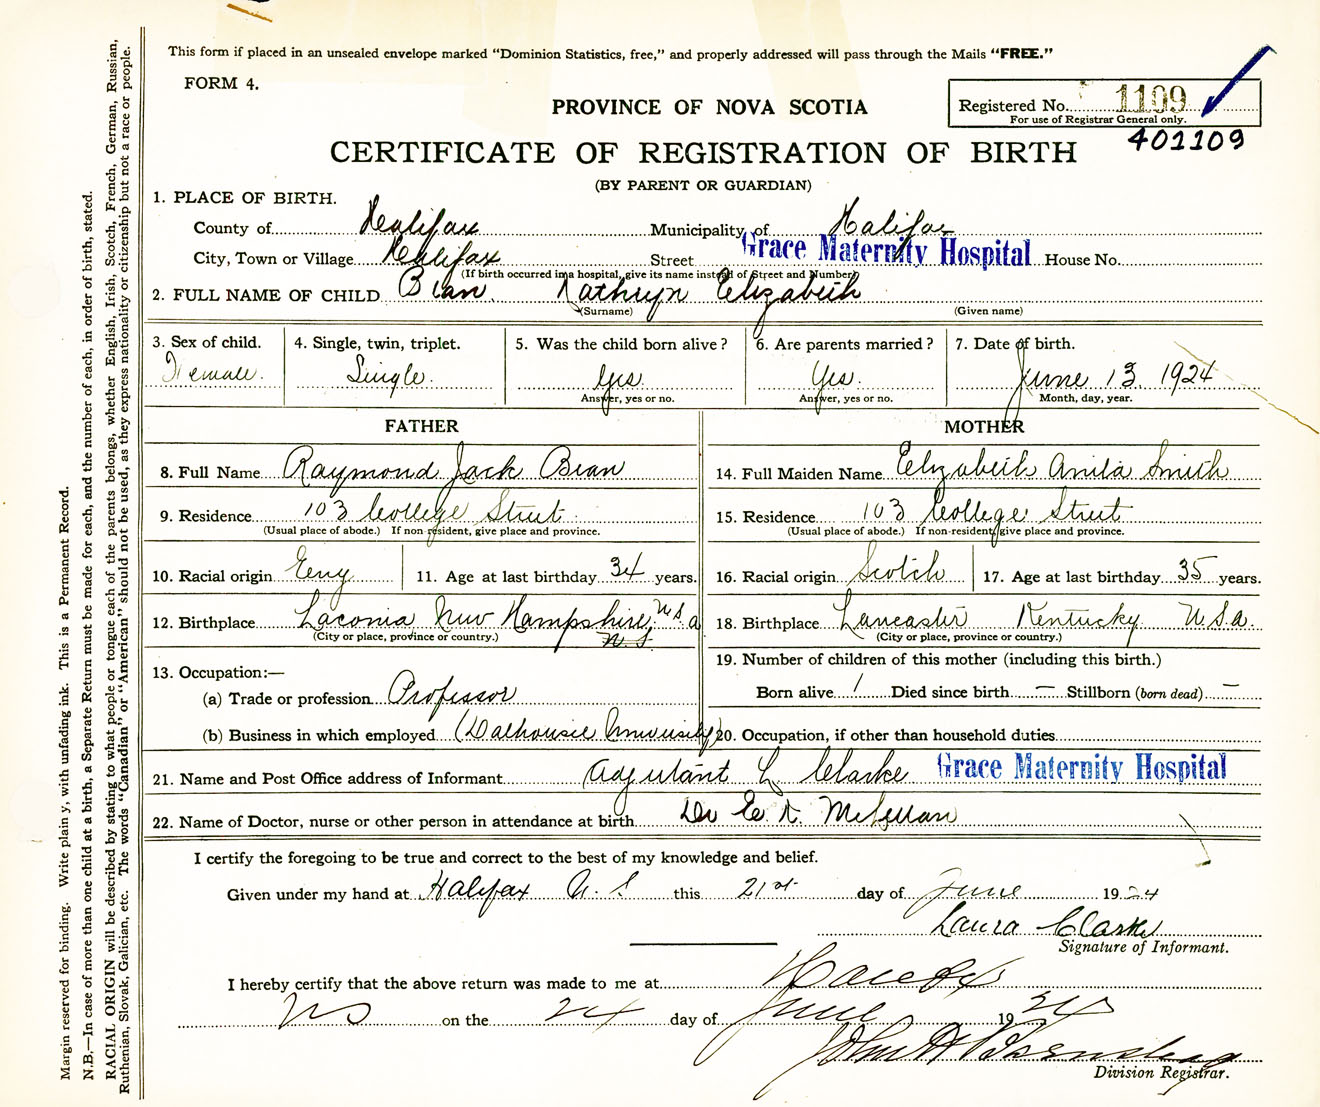 This form if placed in an unsealed envelope marked "Dominion Statistics, free," and properly addressed will pass through the Mails "FREE."
FORM 4.
PROVINCE OF NOVA SCOTIA
Registered No. 1109
For use of Registrar General only.
401109
CERTIFICATE OF REGISTRATION OF BIRTH
(BY PARENT OR GUARDIAN)
1. PLACE OF BIRTH.
County of Halifax Municipality of Halifax
City, Town or Village Halifax Street Grace Maternity Hospital House No.
(If birth occurred in a hospital, give its name instead of Street and Number)
2. FULL NAME OF CHILD Bean Kathryn Elizabeth
(Surname) (Given name)
3. Sex of child. 4. Single, twin, triplet. 5. Was the child born alive? 6. Are parents married? 7. Date of birth.
Female Single. Yes. Yes. June 13 1924
Answer, yes or no. Answer, yes or no. Month, day, year.
FATHER MOTHER
8. Full Name Raymond Jack Bean 14. Full Maiden Name Elizabeth Anita Smith
9. Residence 103 College Street 15. Residence 103 College Street
(Usual place of abode.) If non-resident, give place and province. (Usual place of abode.) If non-resident, give place and province.
10. Racial origin 11. Age at last birthday 34 years. 16. Racial origin Scotch 17. Age at last birthday 35 years.
12. Birthplace Laconia New Hampshire, U.S.A 18. Birthplace Lancaster Kentucky U.S.A.
(City or place, province or country.) N.S. (City or place, province or country.)
13. Occupation:— 19. Number of children of this mother (including this birth.)
(a) Trade or profession Professor Born alive 1 Died since birth — Stillborn (born dead) —
(b) Business in which employed (Dalhousie University) 20. Occupation, if other than household duties
21. Name and Post Office address of Informant Adjutant L. Clarke Grace Maternity Hospital
22. Name of Doctor, nurse or other person in attendance at birth Dr E. K. McLellan
I certify the foregoing to be true and correct to the best of my knowledge and belief.
Given under my hand at Halifax N.S this 21st day of June 1924
Laura Clarke
Signature of Informant.
I hereby certify that the above return was made to me at Halifax
NS on the 24 day of June 1924
John
Division Registrar.
Margin reserved for binding. Write plainly, with unfading ink. This is a Permanent Record.
N.B.—In case of more than one child at a birth, a Separate Return must be made for each, and the number of each, in order of birth, stated.
RACIAL ORIGIN will be described by stating to what people or tongue each of the parents belongs, whether English, Irish, Scotch, French, German, Russian,
Ruthenian, Slovak, Galician, etc. The words "Canadian" or "American" should not be used, as they express nationality or citizenship but not a race or people.